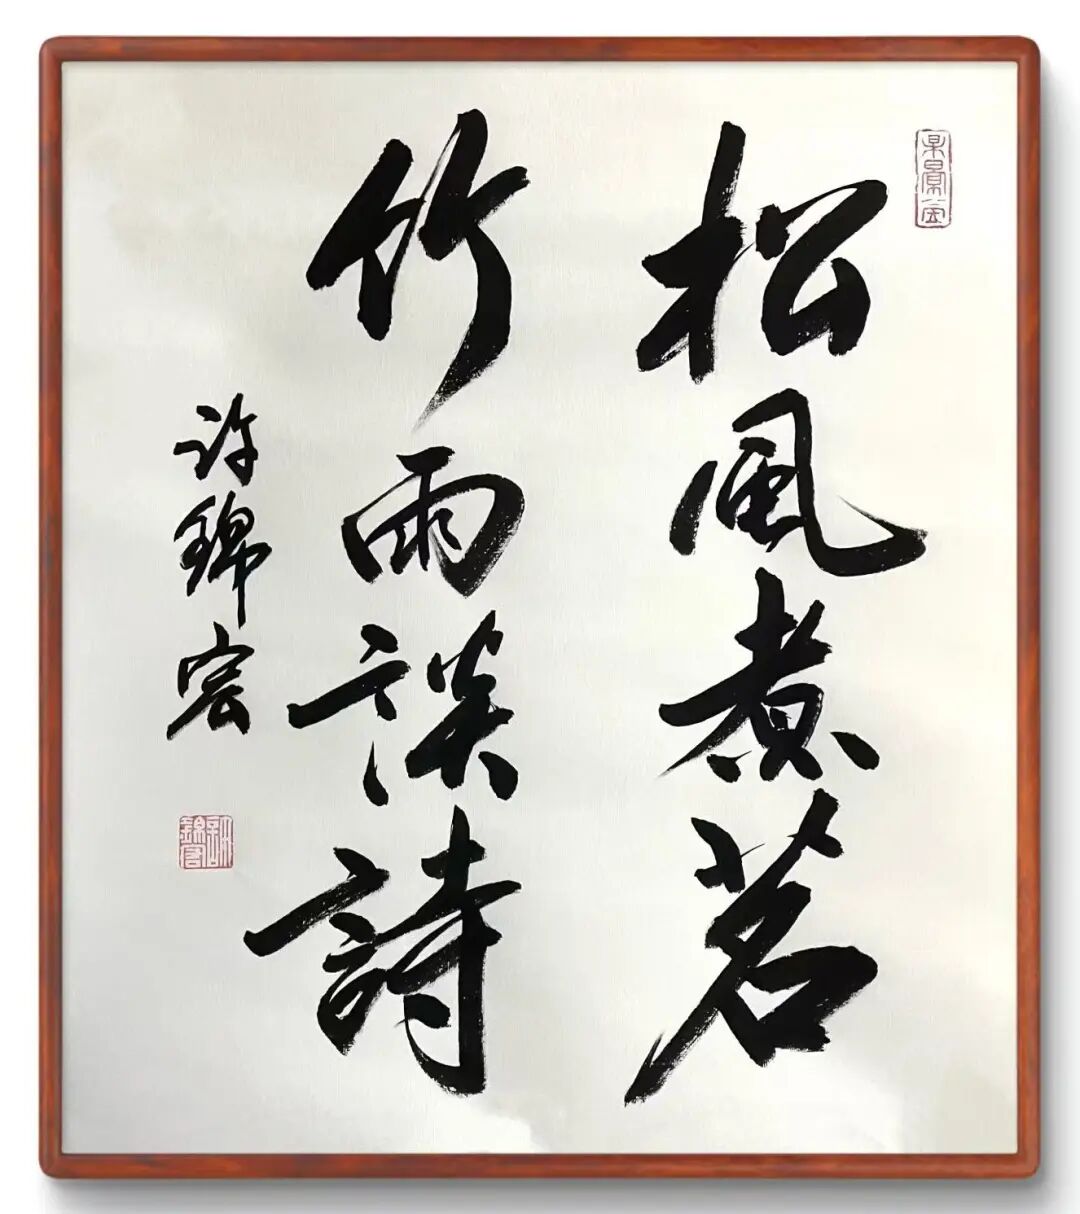 松風煮茗
竹雨談詩
許錦宏